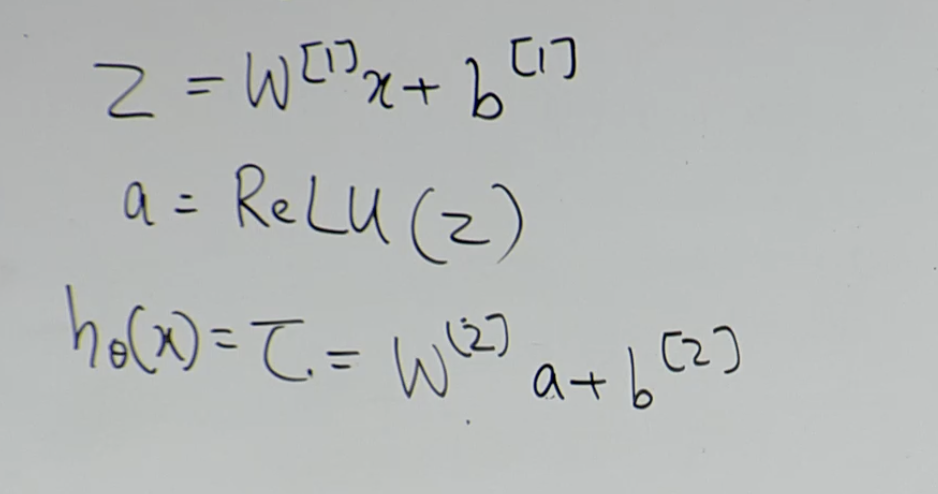 z = W^[1]x + b^[1]
a = ReLU(z)
h_θ(x) = τ. = W^(2) a + b^[2]